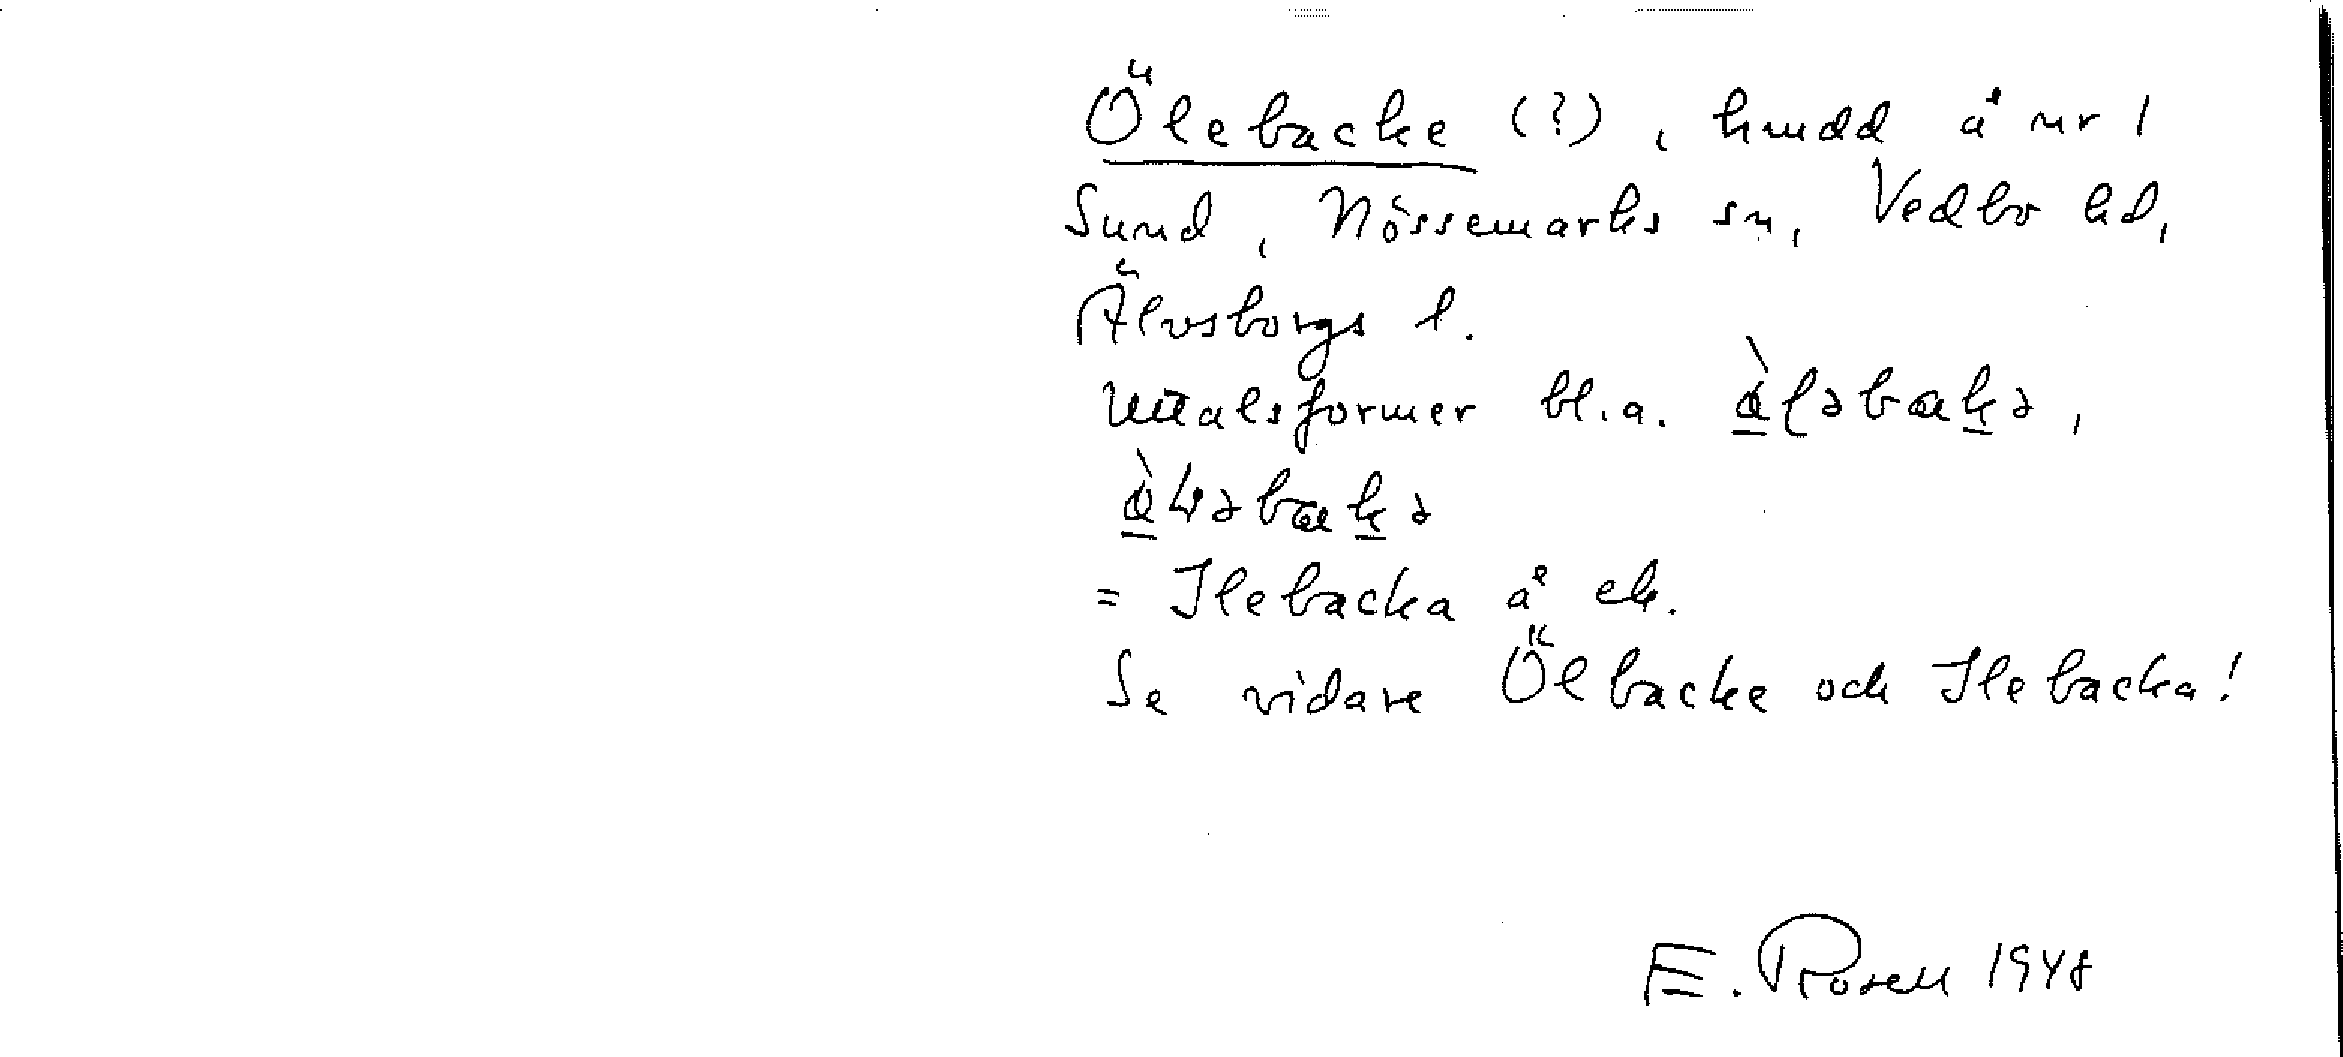 Ölebacke (?), hmdd å nr 1
Sund, Nössemarks sn, Vedbo hd,
Älvsborgs l.
Uttalsformer bl.a.
= Ilebacka å ek.
Se vidare Ölbacke och Ilebacka!
E. Rosell 1948